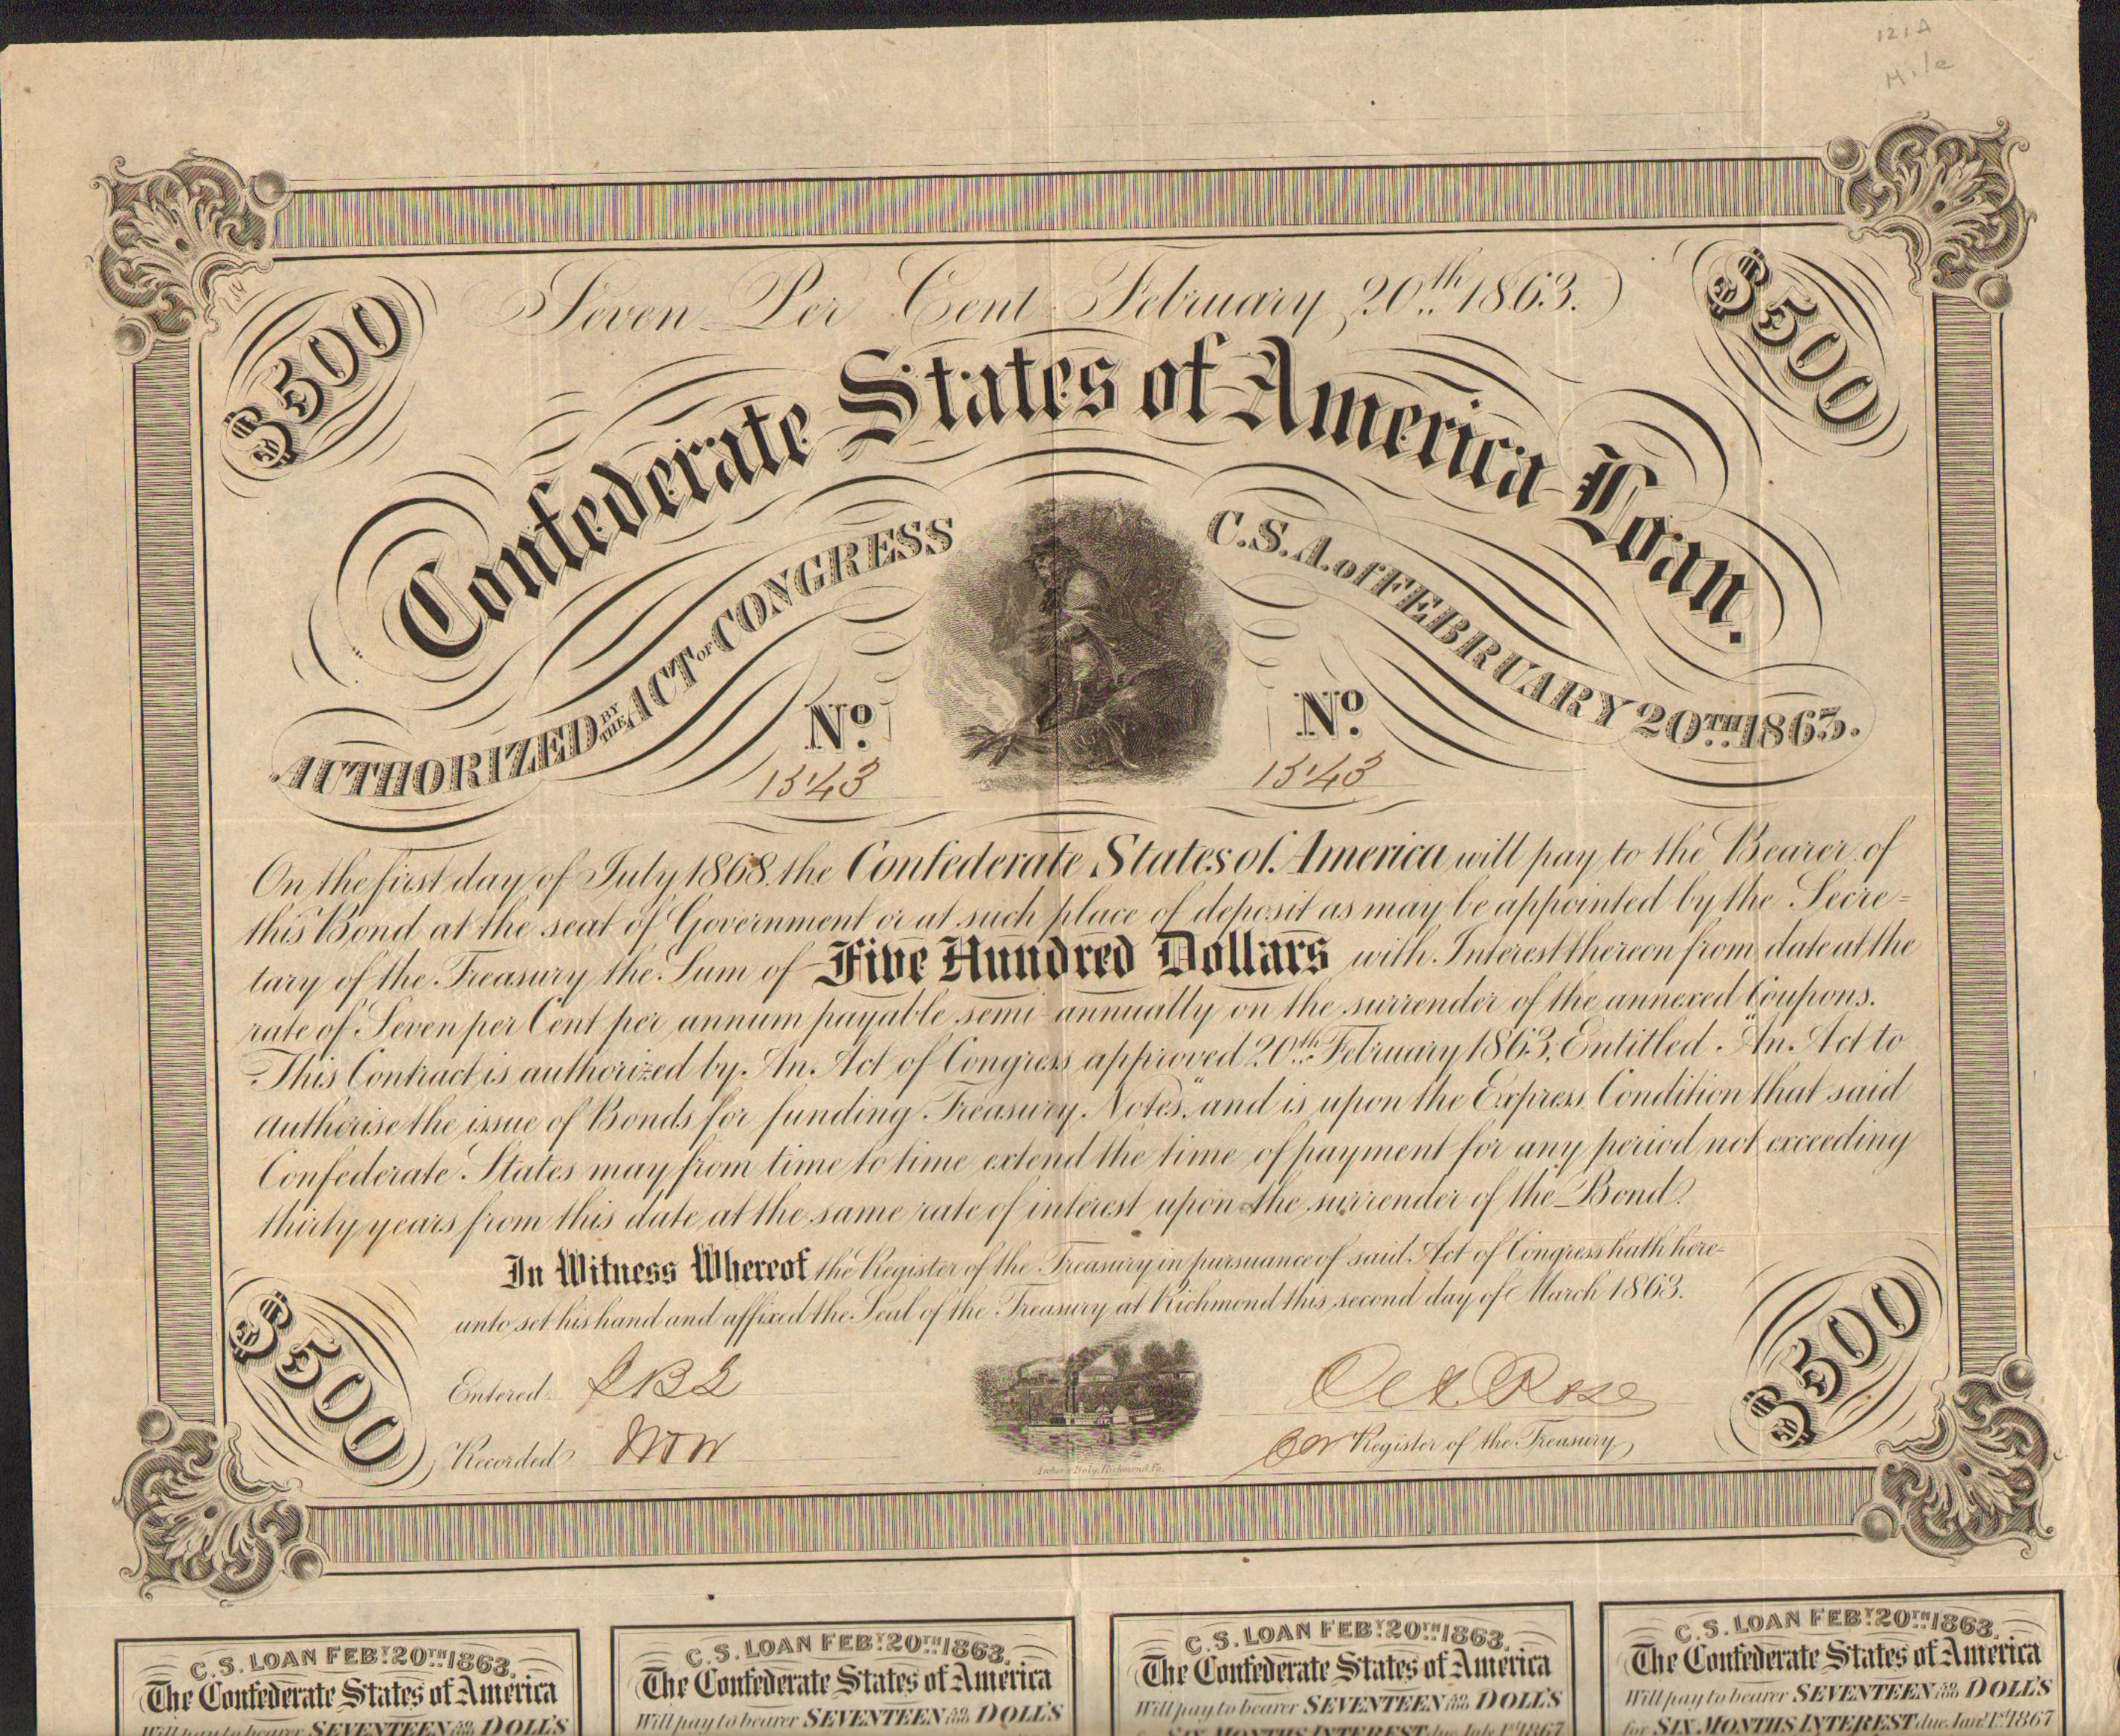 121A
Seven Per Cent February 20th 1863.
$500
$500
Confederate States of America Loan.
AUTHORIZED BY THE ACT OF CONGRESS C.S.A. of FEBRUARY 20TH 1863.
No. No.
1343 1343
On the first day of July 1868. the Confederate States of America will pay to the Bearer of
this Bond at the seat of Government or at such place of deposit as may be appointed by the Secre=
tary of the Treasury the Sum of Five Hundred Dollars with Interest thereon from date at the
rate of Seven per Cent per annum payable semi-annually on the surrender of the annexed Coupons.
This Contract is authorized by An Act of Congress approved 20th February 1863, Entitled "An Act to
authorise the issue of Bonds for funding Treasury Notes," and is upon the Express Condition that said
Confederate States may from time to time extend the time of payment for any period not exceeding
thirty years from this date at the same rate of interest upon the surrender of the Bond.
In Witness Whereof the Register of the Treasury in pursuance of said Act of Congress hath here-
unto set his hand and affixed the Seal of the Treasury at Richmond this second day of March 1863.
$500
$500
Entered
Rose
Recorded
for Register of the Treasury
Archer & Daly, Richmond, Va.
C.S. LOAN FEBY 20TH 1863.
The Confederate States of America
Will pay to bearer SEVENTEEN 50/100 DOLL'S
C.S. LOAN FEBY 20TH 1863.
The Confederate States of America
Will pay to bearer SEVENTEEN 50/100 DOLL'S
C.S. LOAN FEBY 20TH 1863.
The Confederate States of America
Will pay to bearer SEVENTEEN 50/100 DOLL'S
for SIX MONTHS INTEREST due July 1st 1867
C.S. LOAN FEBY 20TH 1863.
The Confederate States of America
Will pay to bearer SEVENTEEN 50/100 DOLL'S
for SIX MONTHS INTEREST due Jany 1st 1867